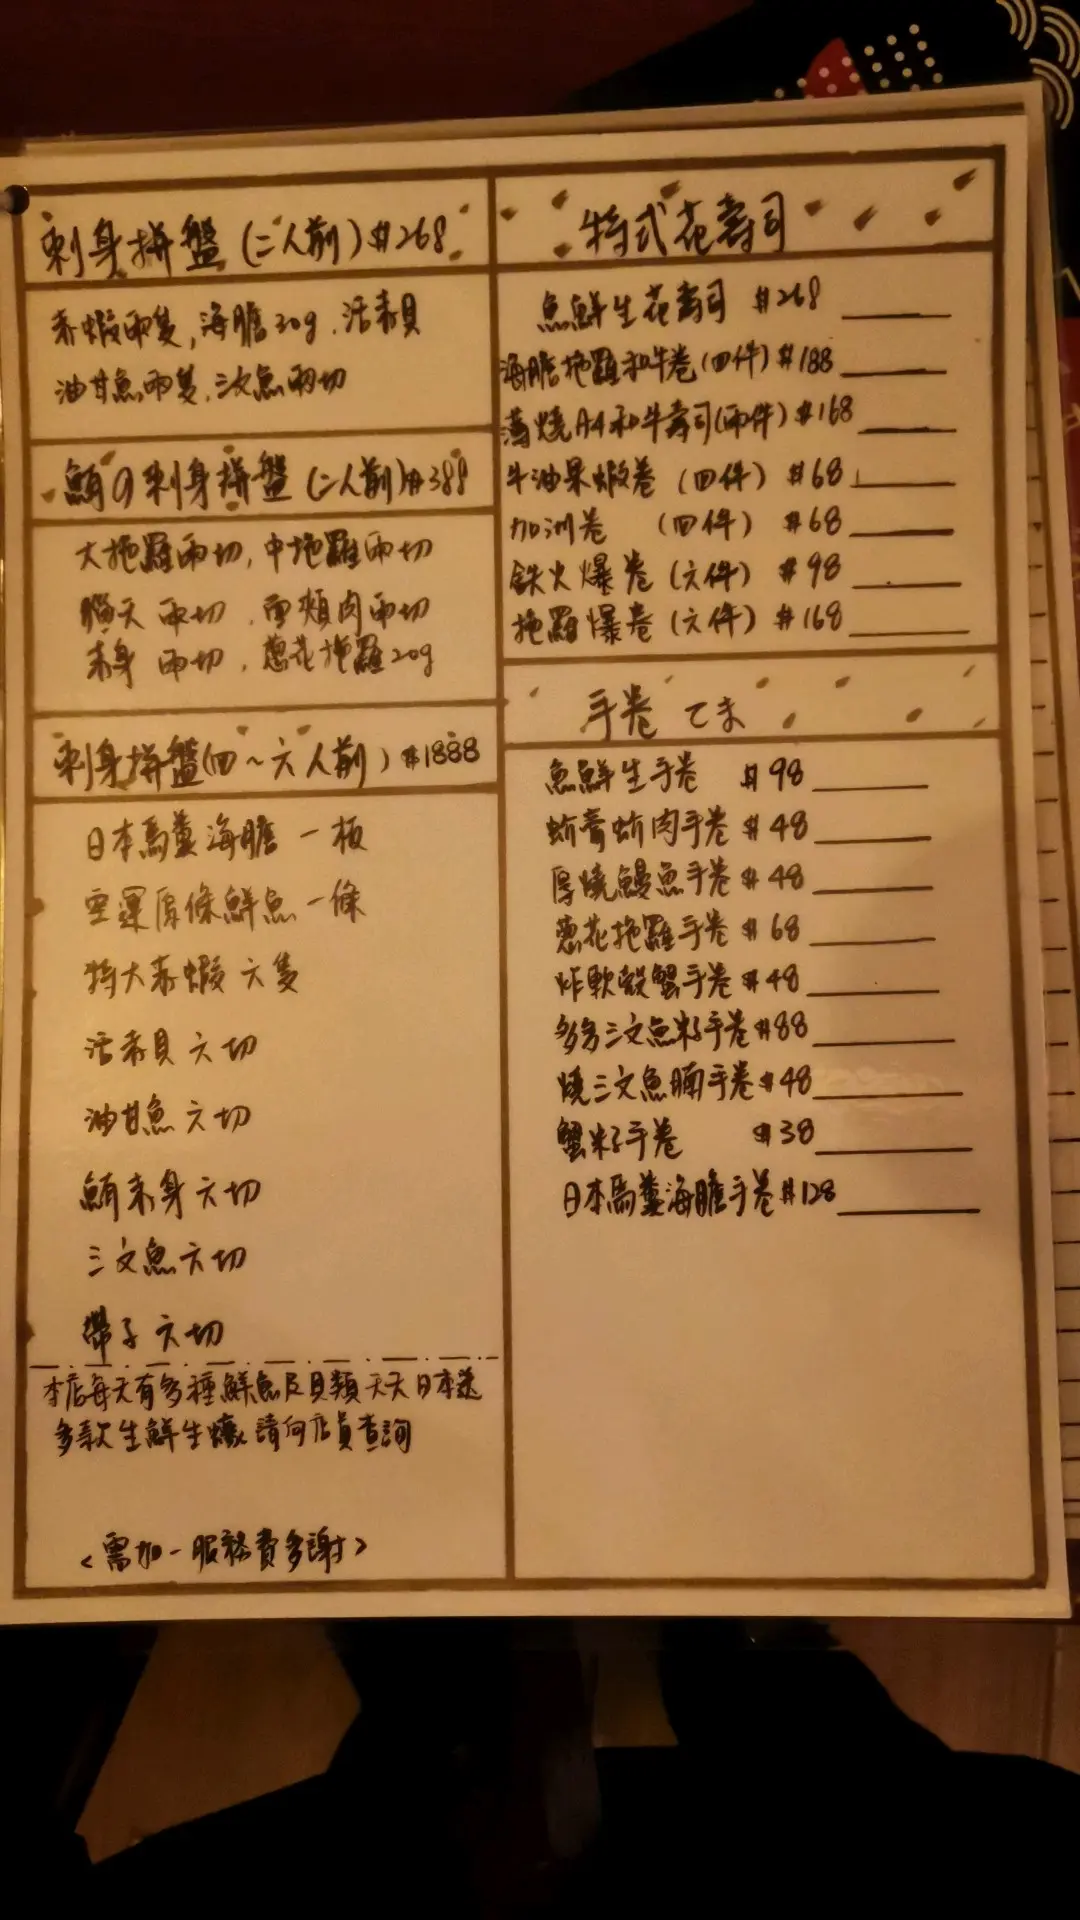 刺身拼盤(二人前)$268
赤蝦兩隻,海膽30g.活赤貝
油甘魚兩隻.三文魚兩切
鮪の刺身拼盤(二人前)$388
大拖羅兩切,中拖羅兩切
腦天 兩切.面頰肉兩切
赤身 兩切.蔥花拖羅20g
刺身拼盤(四~六人前)$1888
日本馬糞海膽 一板
空運原條鮮魚一條
特大赤蝦 六隻
活赤貝 六切
油甘魚 六切
鮪赤身 六切
三文魚 六切
帶子 六切
本店每天有多種鮮魚及貝類天天日本送
多款生鮮生蠔請向店員查詢
<需加一服務費多謝>
特式花壽司
魚鮮生花壽司 $268
海膽拖羅和牛卷(四件)$188
薄燒A4和牛壽司(兩件)$168
牛油果蝦卷(四件)$68
加洲卷 (四件) $68
鉄火爆卷(六件) $98
拖羅爆卷(六件) $168
手卷 てま
魚鮮生手卷 $98
蚧膏蚧肉手卷 $48
厚燒鰻魚手卷 $48
蔥花拖羅手卷 $68
炸軟殼蟹手卷 $48
多多三文魚籽手卷 $88
燒三文魚腩手卷 $48
蟹籽手卷 $38
日本馬糞海膽手卷 $128